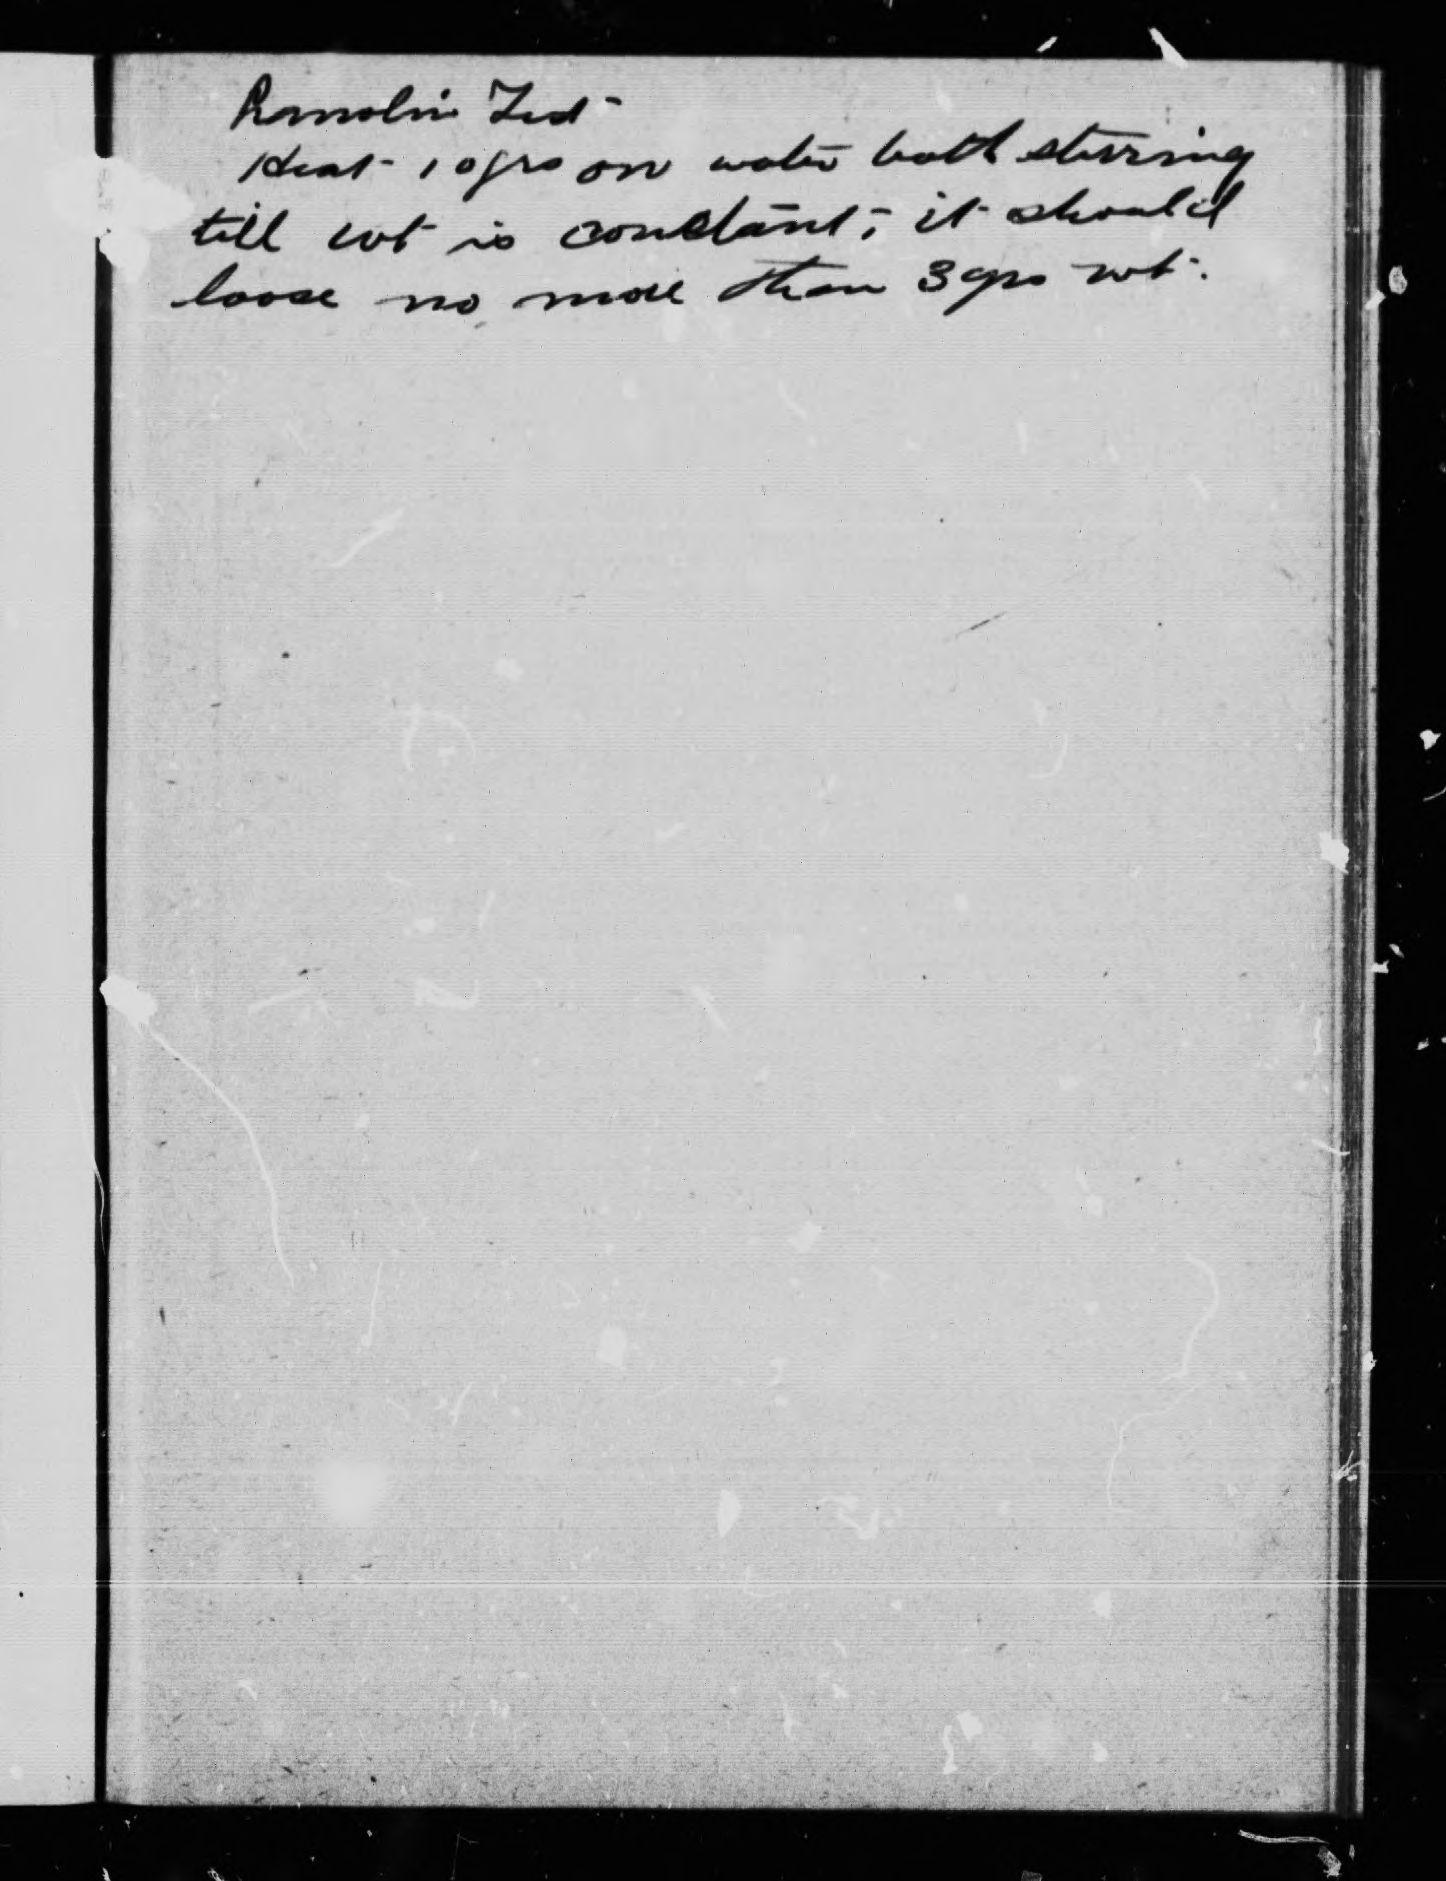 Lanolin Test
Heat 10 grs on water bath stirring
till wt is constant; it should
loose no more than 3 grs wt.